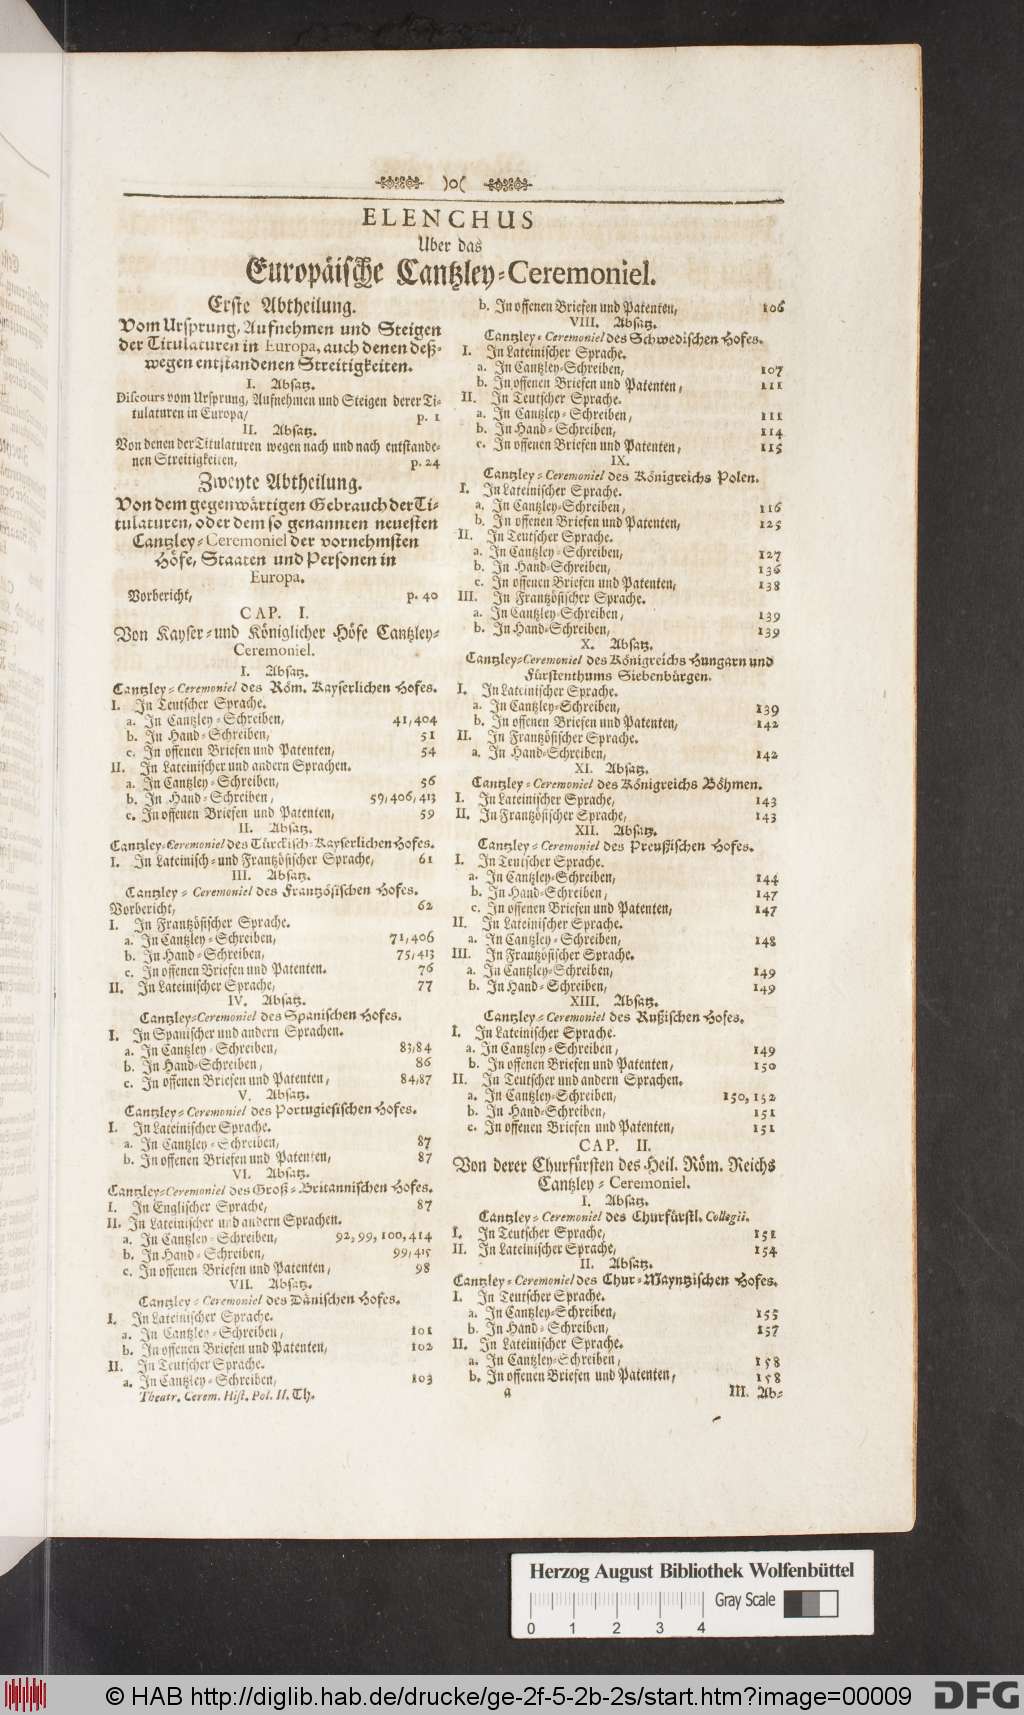 )o(
ELENCHUS
Uber das
Europäische Cantzley-Ceremoniel.
Erste Abtheilung.
Vom Ursprung, Aufnehmen und Steigen
der Titulaturen in Europa, auch denen deß-
wegen entstandenen Streitigkeiten.
I. Absatz.
Discours vom Ursprung, Aufnehmen und Steigen derer Ti-
tulaturen in Europa/ p. 1
II. Absatz.
Von denen der Titulaturen wegen nach und nach entstande-
nen Streitigkeiten, p. 24
Zweyte Abtheilung.
Von dem gegenwärtigen Gebrauch der Ti-
tulaturen, oder dem so genannten neuesten
Cantzley-Ceremoniel der vornehmsten
Höfe, Staaten und Personen in
Europa.
Vorbericht, p. 40
CAP. I.
Von Kayser- und Königlicher Höfe Cantzley-
Ceremoniel.
I. Absatz.
Cantzley-Ceremoniel des Röm. Kayserlichen Hofes.
I. In Teutscher Sprache.
a. In Cantzley-Schreiben, 41, 404
b. In Hand-Schreiben, 51
c. In offenen Briefen und Patenten, 54
II. In Lateinischer und andern Sprachen.
a. In Cantzley-Schreiben, 56
b. In Hand-Schreiben, 59, 406, 413
c. In offenen Briefen und Patenten, 59
II. Absatz.
Cantzley-Ceremoniel des Türckisch-Kayserlichen Hofes.
I. In Lateinisch- und Frantzösischer Sprache, 61
III. Absatz.
Cantzley-Ceremoniel des Frantzösischen Hofes.
Vorbericht, 62
I. In Frantzösischer Sprache.
a. In Cantzley-Schreiben, 71, 406
b. In Hand-Schreiben, 75, 413
c. In offenen Briefen und Patenten. 76
II. In Lateinischer Sprache, 77
IV. Absatz.
Cantzley-Ceremoniel des Spanischen Hofes.
I. In Spanischer und andern Sprachen.
a. In Cantzley-Schreiben, 83, 84
b. In Hand-Schreiben, 86
c. In offenen Briefen und Patenten, 84, 87
V. Absatz.
Cantzley-Ceremoniel des Portugiesischen Hofes.
I. In Lateinischer Sprache.
a. In Cantzley-Schreiben, 87
b. In offenen Briefen und Patenten, 87
VI. Absatz.
Cantzley-Ceremoniel des Groß-Britannischen Hofes.
I. In Englischer Sprache, 87
II. In Lateinischer und andern Sprachen.
a. In Cantzley-Schreiben, 92, 99, 100, 414
b. In Hand-Schreiben, 99, 415
c. In offenen Briefen und Patenten, 98
VII. Absatz.
Cantzley-Ceremoniel des Dänischen Hofes.
I. In Lateinischer Sprache.
a. In Cantzley-Schreiben, 101
b. In offenen Briefen und Patenten, 102
II. In Teutscher Sprache.
a. In Cantzley-Schreiben, 103
Theatr. Cerem. Hist. Pol. II. Th.
b. In offenen Briefen und Patenten, 106
VIII. Absatz.
Cantzley-Ceremoniel des Schwedischen Hofes.
I. In Lateinischer Sprache.
a. In Cantzley-Schreiben, 107
b. In offenen Briefen und Patenten, 111
II. In Teutscher Sprache.
a. In Cantzley-Schreiben, 111
b. In Hand-Schreiben, 114
c. In offenen Briefen und Patenten, 115
IX.
Cantzley-Ceremoniel des Königreichs Polen.
I. In Lateinischer Sprache.
a. In Cantzley-Schreiben, 116
b. In offenen Briefen und Patenten, 125
II. In Teutscher Sprache.
a. In Cantzley-Schreiben, 127
b. In Hand-Schreiben, 136
c. In offenen Briefen und Patenten, 138
III. In Frantzösischer Sprache.
a. In Cantzley-Schreiben, 139
b. In Hand-Schreiben, 139
X. Absatz.
Cantzley-Ceremoniel des Königreichs Hungarn und
Fürstenthums Siebenbürgen.
I. In Lateinischer Sprache.
a. In Cantzley-Schreiben, 139
b. In offenen Briefen und Patenten, 142
II. In Frantzösischer Sprache.
a. In Hand-Schreiben, 142
XI. Absatz.
Cantzley-Ceremoniel des Königreichs Böhmen.
I. In Lateinischer Sprache, 143
II. In Frantzösischer Sprache, 143
XII. Absatz.
Cantzley-Ceremoniel des Preußischen Hofes.
I. In Teutscher Sprache.
a. In Cantzley-Schreiben, 144
b. In Hand-Schreiben, 147
c. In offenen Briefen und Patenten, 147
II. In Lateinischer Sprache.
a. In Cantzley-Schreiben, 148
III. In Frantzösischer Sprache.
a. In Cantzley-Schreiben, 149
b. In Hand-Schreiben, 149
XIII. Absatz.
Cantzley-Ceremoniel des Rußischen Hofes.
I. In Lateinischer Sprache.
a. In Cantzley-Schreiben, 149
b. In offenen Briefen und Patenten, 150
II. In Teutscher und andern Sprachen.
a. In Cantzley-Schreiben, 150, 152
b. In Hand-Schreiben, 151
c. In offenen Briefen und Patenten, 151
CAP. II.
Von derer Churfürsten des Heil. Röm. Reichs
Cantzley-Ceremoniel.
I. Absatz.
Cantzley-Ceremoniel des Churfürstl. Collegii.
I. In Teutscher Sprache, 151
II. In Lateinischer Sprache, 154
II. Absatz.
Cantzley-Ceremoniel des Chur-Mayntzischen Hofes.
I. In Teutscher Sprache.
a. In Cantzley-Schreiben, 155
b. In Hand-Schreiben, 157
II. In Lateinischer Sprache.
a. In Cantzley-Schreiben, 158
b. In offenen Briefen und Patenten, 158
a III. Ab-
Herzog August Bibliothek Wolfenbüttel
Gray Scale
0 1 2 3 4
© HAB http://diglib.hab.de/drucke/ge-2f-5-2b-2s/start.htm?image=00009
DFG